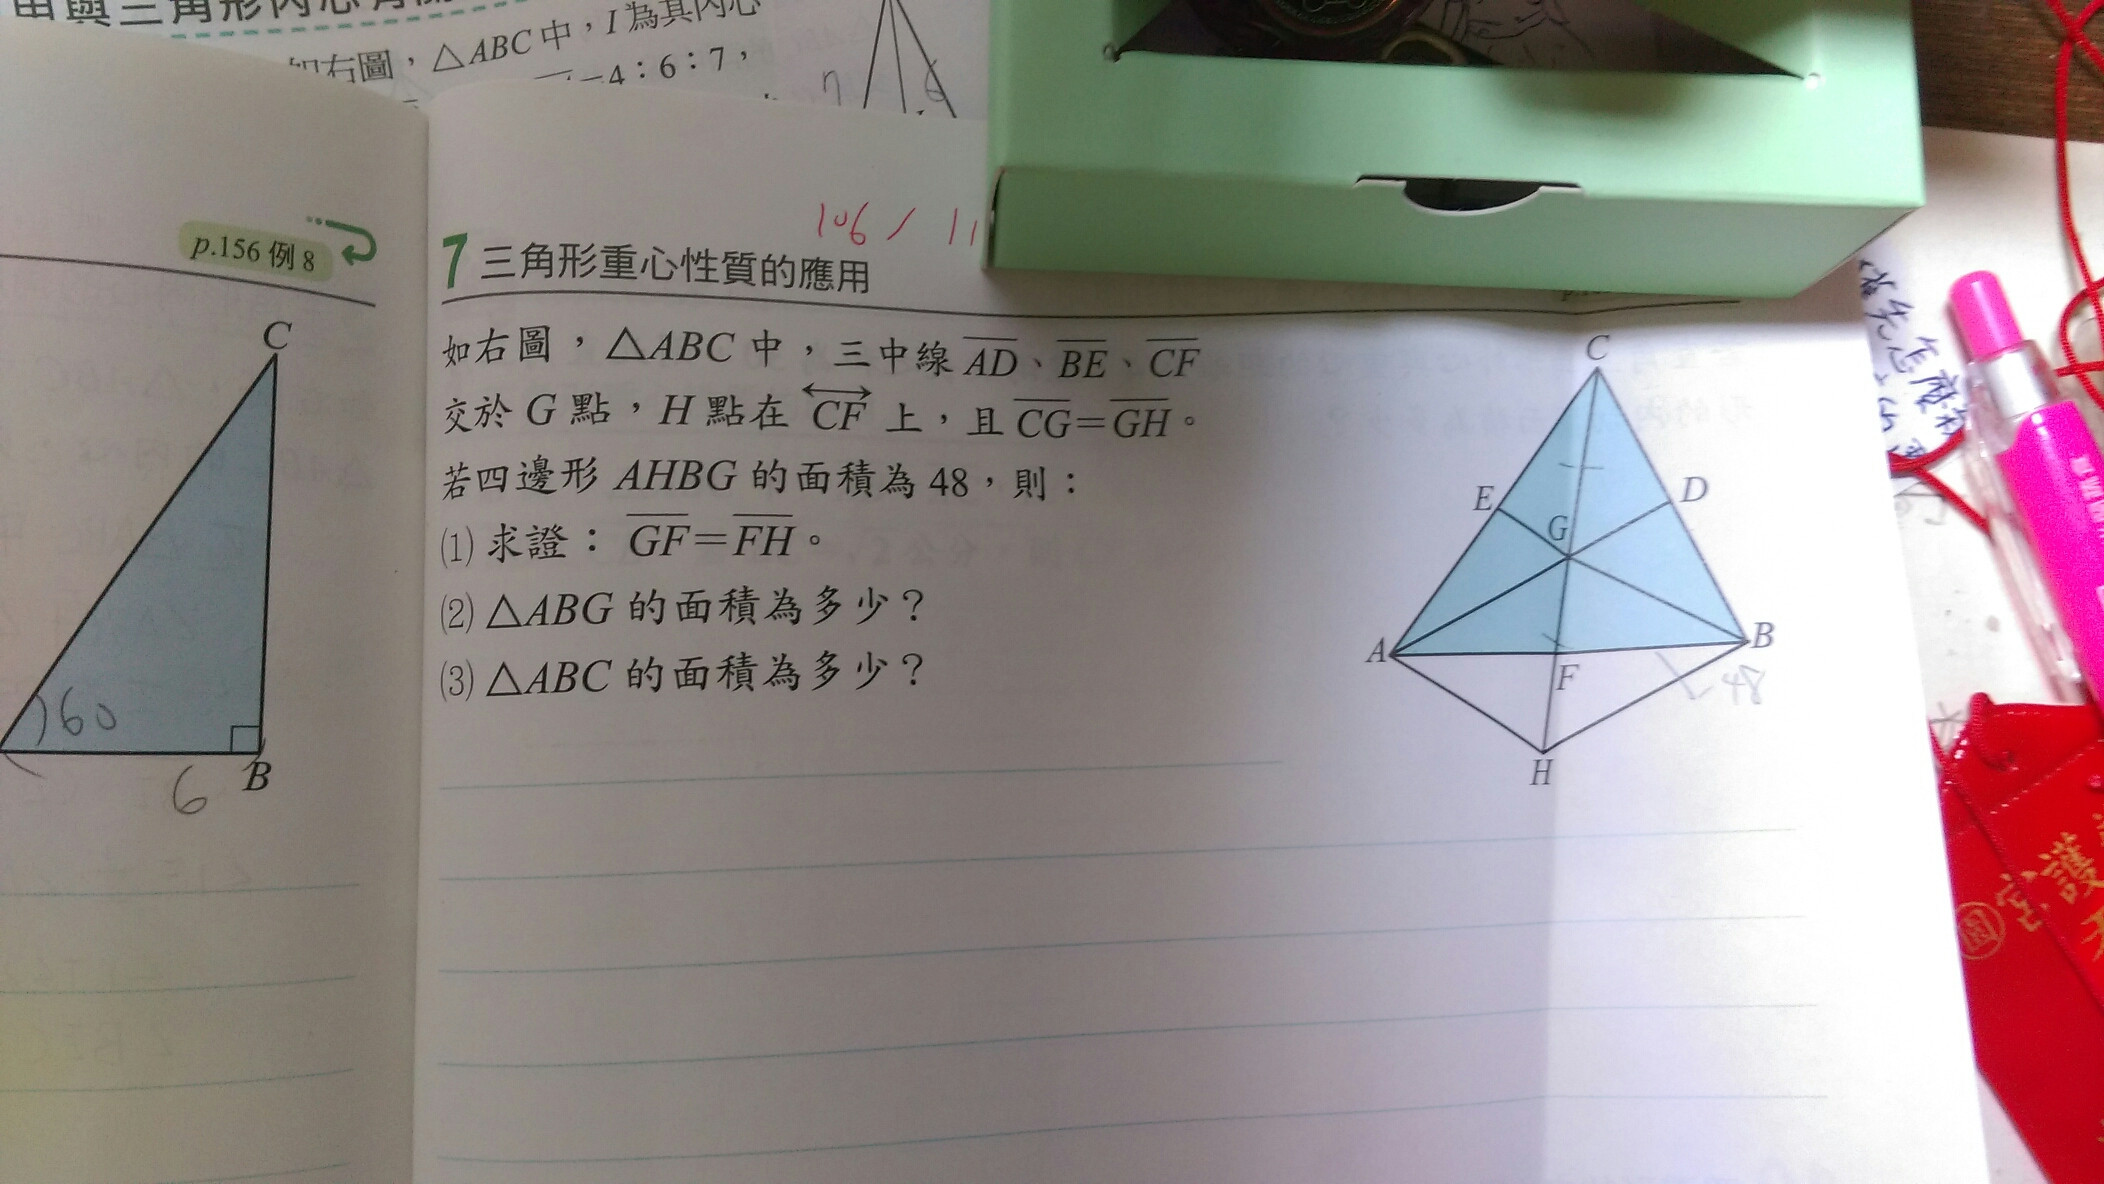 如右圖，△ABC中，I為其內心
4：6：7，
7
6
p.156 例8
C
60
6
B
106 / 11
7 三角形重心性質的應用
如右圖，△ABC 中，三中線 AD、BE、CF
交於 G 點，H 點在 CF 上，且 CG=GH。
若四邊形 AHBG 的面積為 48，則：
(1) 求證： GF=FH。
(2) △ABG 的面積為多少？
(3) △ABC 的面積為多少？
C
E
D
G
A
B
F
48
H
護
宮